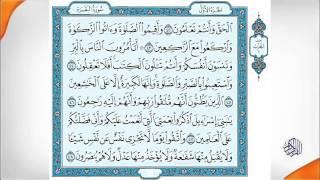 الجزء الأول سورة البقرة
ٱلْحَقَّ وَأَنتُمْ تَعْلَمُونَ ٤٢ وَأَقِيمُوا۟ ٱلصَّلَوٰةَ وَءَاتُوا۟ ٱلزَّكَوٰةَ
وَٱرْكَعُوا۟ مَعَ ٱلرَّٰكِعِينَ ٤٣ أَتَأْمُرُونَ ٱلنَّاسَ بِٱلْبِرِّ
وَتَنسَوْنَ أَنفُسَكُمْ وَأَنتُمْ تَتْلُونَ ٱلْكِتَٰبَ أَفَلَا تَعْقِلُونَ ٤٤
وَٱسْتَعِينُوا۟ بِٱلصَّبْرِ وَٱلصَّلَوٰةِ وَإِنَّهَا لَكَبِيرَةٌ إِلَّا عَلَى ٱلْخَٰشِعِينَ ٤٥
ٱلَّذِينَ يَظُنُّونَ أَنَّهُم مُّلَٰقُوا۟ رَبِّهِمْ وَأَنَّهُمْ إِلَيْهِ رَٰجِعُونَ ٤٦
يَٰبَنِىٓ إِسْرَٰٓءِيلَ ٱذْكُرُوا۟ نِعْمَتِىَ ٱلَّتِىٓ أَنْعَمْتُ عَلَيْكُمْ وَأَنِّى فَضَّلْتُكُمْ
عَلَى ٱلْعَٰلَمِينَ ٤٧ وَٱتَّقُوا۟ يَوْمًا لَّا تَجْزِى نَفْسٌ عَن نَّفْسٍ شَيْـًٔا
وَلَا يُقْبَلُ مِنْهَا شَفَٰعَةٌ وَلَا يُؤْخَذُ مِنْهَا عَدْلٌ وَلَا هُمْ يُنصَرُونَ ٤٨